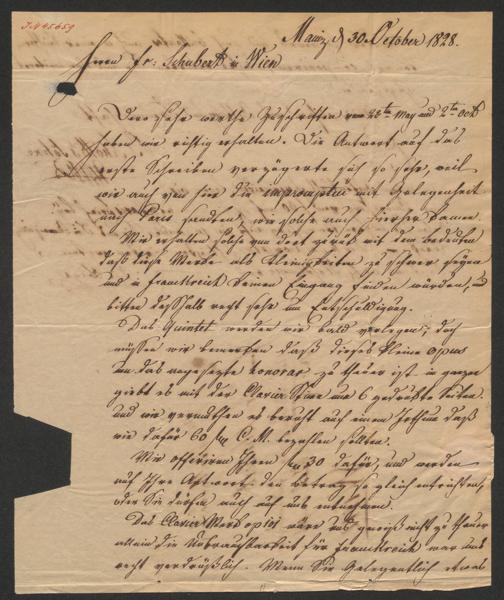 J.N 45659
Mainz d 30. October 1828.
Herrn Fr: Schubert in Wien
Dero sehr werthe Zuschriften vom 28ten May und 2ten Octb
haben wir richtig erhalten. Die Antwort auf das
erste Schreiben verzögerte sich so sehr, weil
wir auch von hier die impromptus mit Gelegenheit
nach Paris sandten, wie solche auch hierher kamen.
Wir erhalten solche von dort zurück mit dem Bedeuten
daß diese Werke als Kleinigkeiten zu schwer seyen
und in Frankreich keinen Eingang finden würden,
bitten desshalb recht sehr um Entschuldigung.
Das Quintet werden wir bald verlegen; doch
müssen wir bemerken daß dieses kleine opus
um das angesetzte honorar zu theuer ist. im ganzen
giebt es mit der Clavier Stime nur 6 gedruckte Seiten
und wir vermuthen es beruht auf einem Irrthum daß
wir dafür 60 C. M. bezahlen sollten.
Wir offeriren Ihnen 30 dafür, und werden
auf Ihre Antwort den Betrag so gleich entrichten,
oder Sie dürfen auch auf uns entnehmen.
Das Clavier Werk wäre uns gewiß nicht zu theuer
allein die Unbrauchbarkeit für Frankreich war uns
recht verdrüßlich. Wenn Sie Gelegentlich etwas